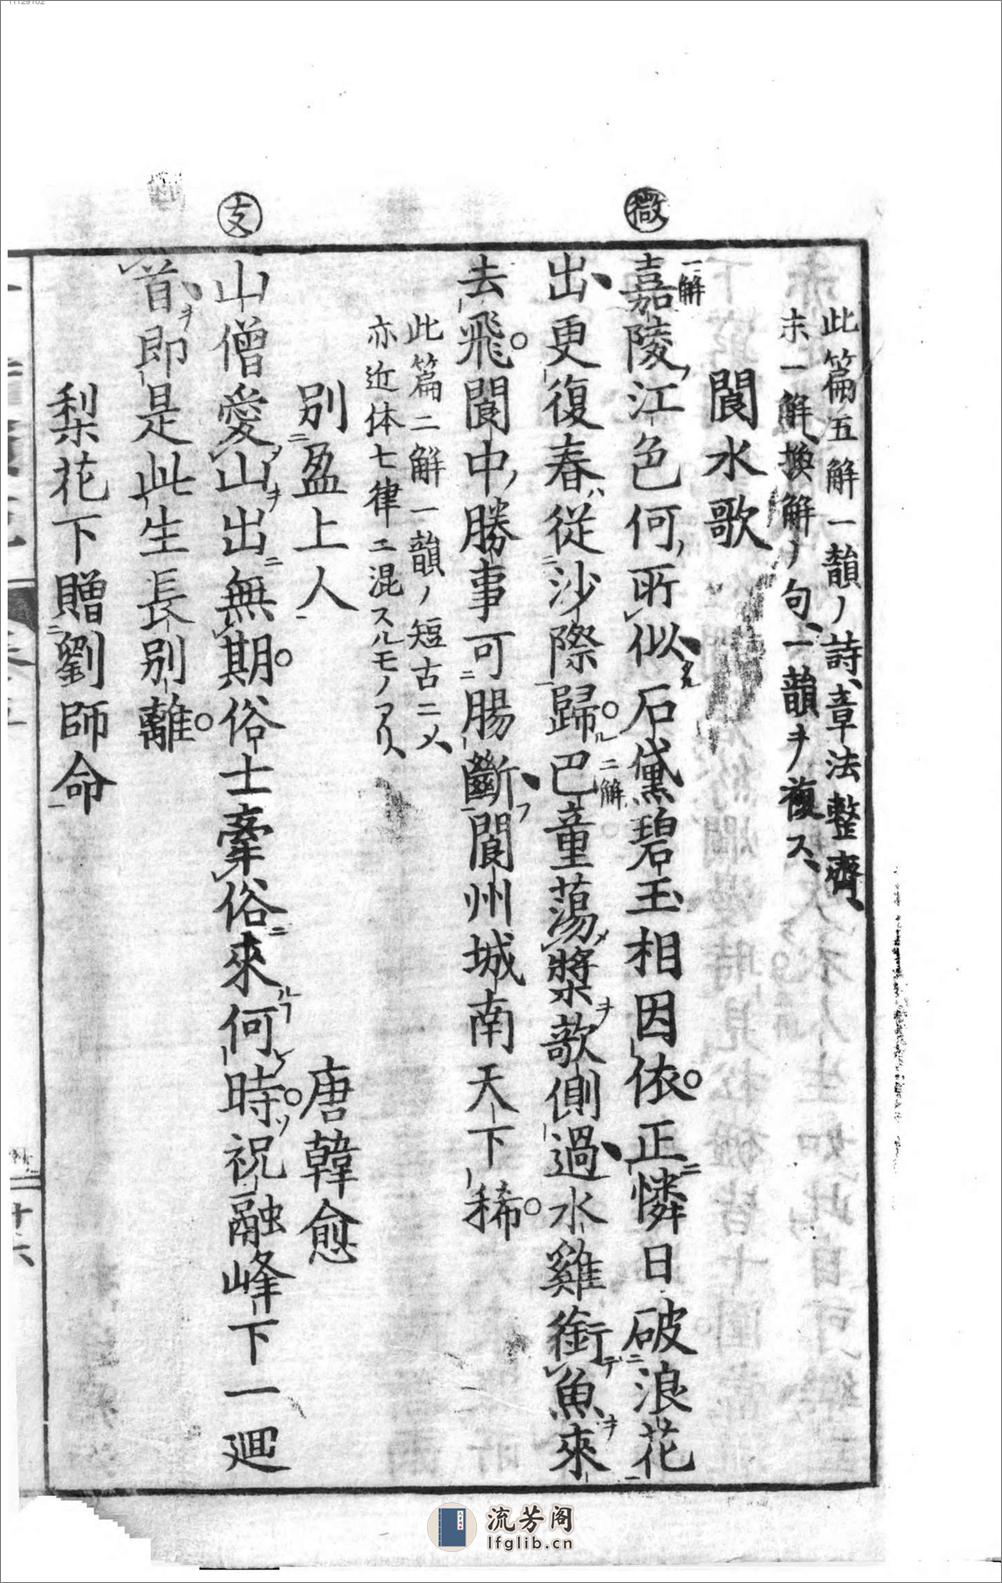 11129162
微
支
此篇五解一韻ノ詩、章法整齊、
末一解、換解ノ句、一韻ヲ複ス、
閬水歌
一解
嘉陵江色何所似石黛碧玉相因依正憐日破浪花
出更復春從沙際歸二解巴童蕩槳欹側過水雞銜魚來
去飛閬中勝事可腸斷閬州城南天下稀
此篇二解一韻ノ短古ニメ、
亦近体七律ニ混スルモノアリ、
別盈上人 唐韓愈
山僧愛山出無期俗士牽俗來何時祝融峰下一廻
首即是此生長別離
梨花下贈劉師命
十六
流芳阁
lfglib.cn